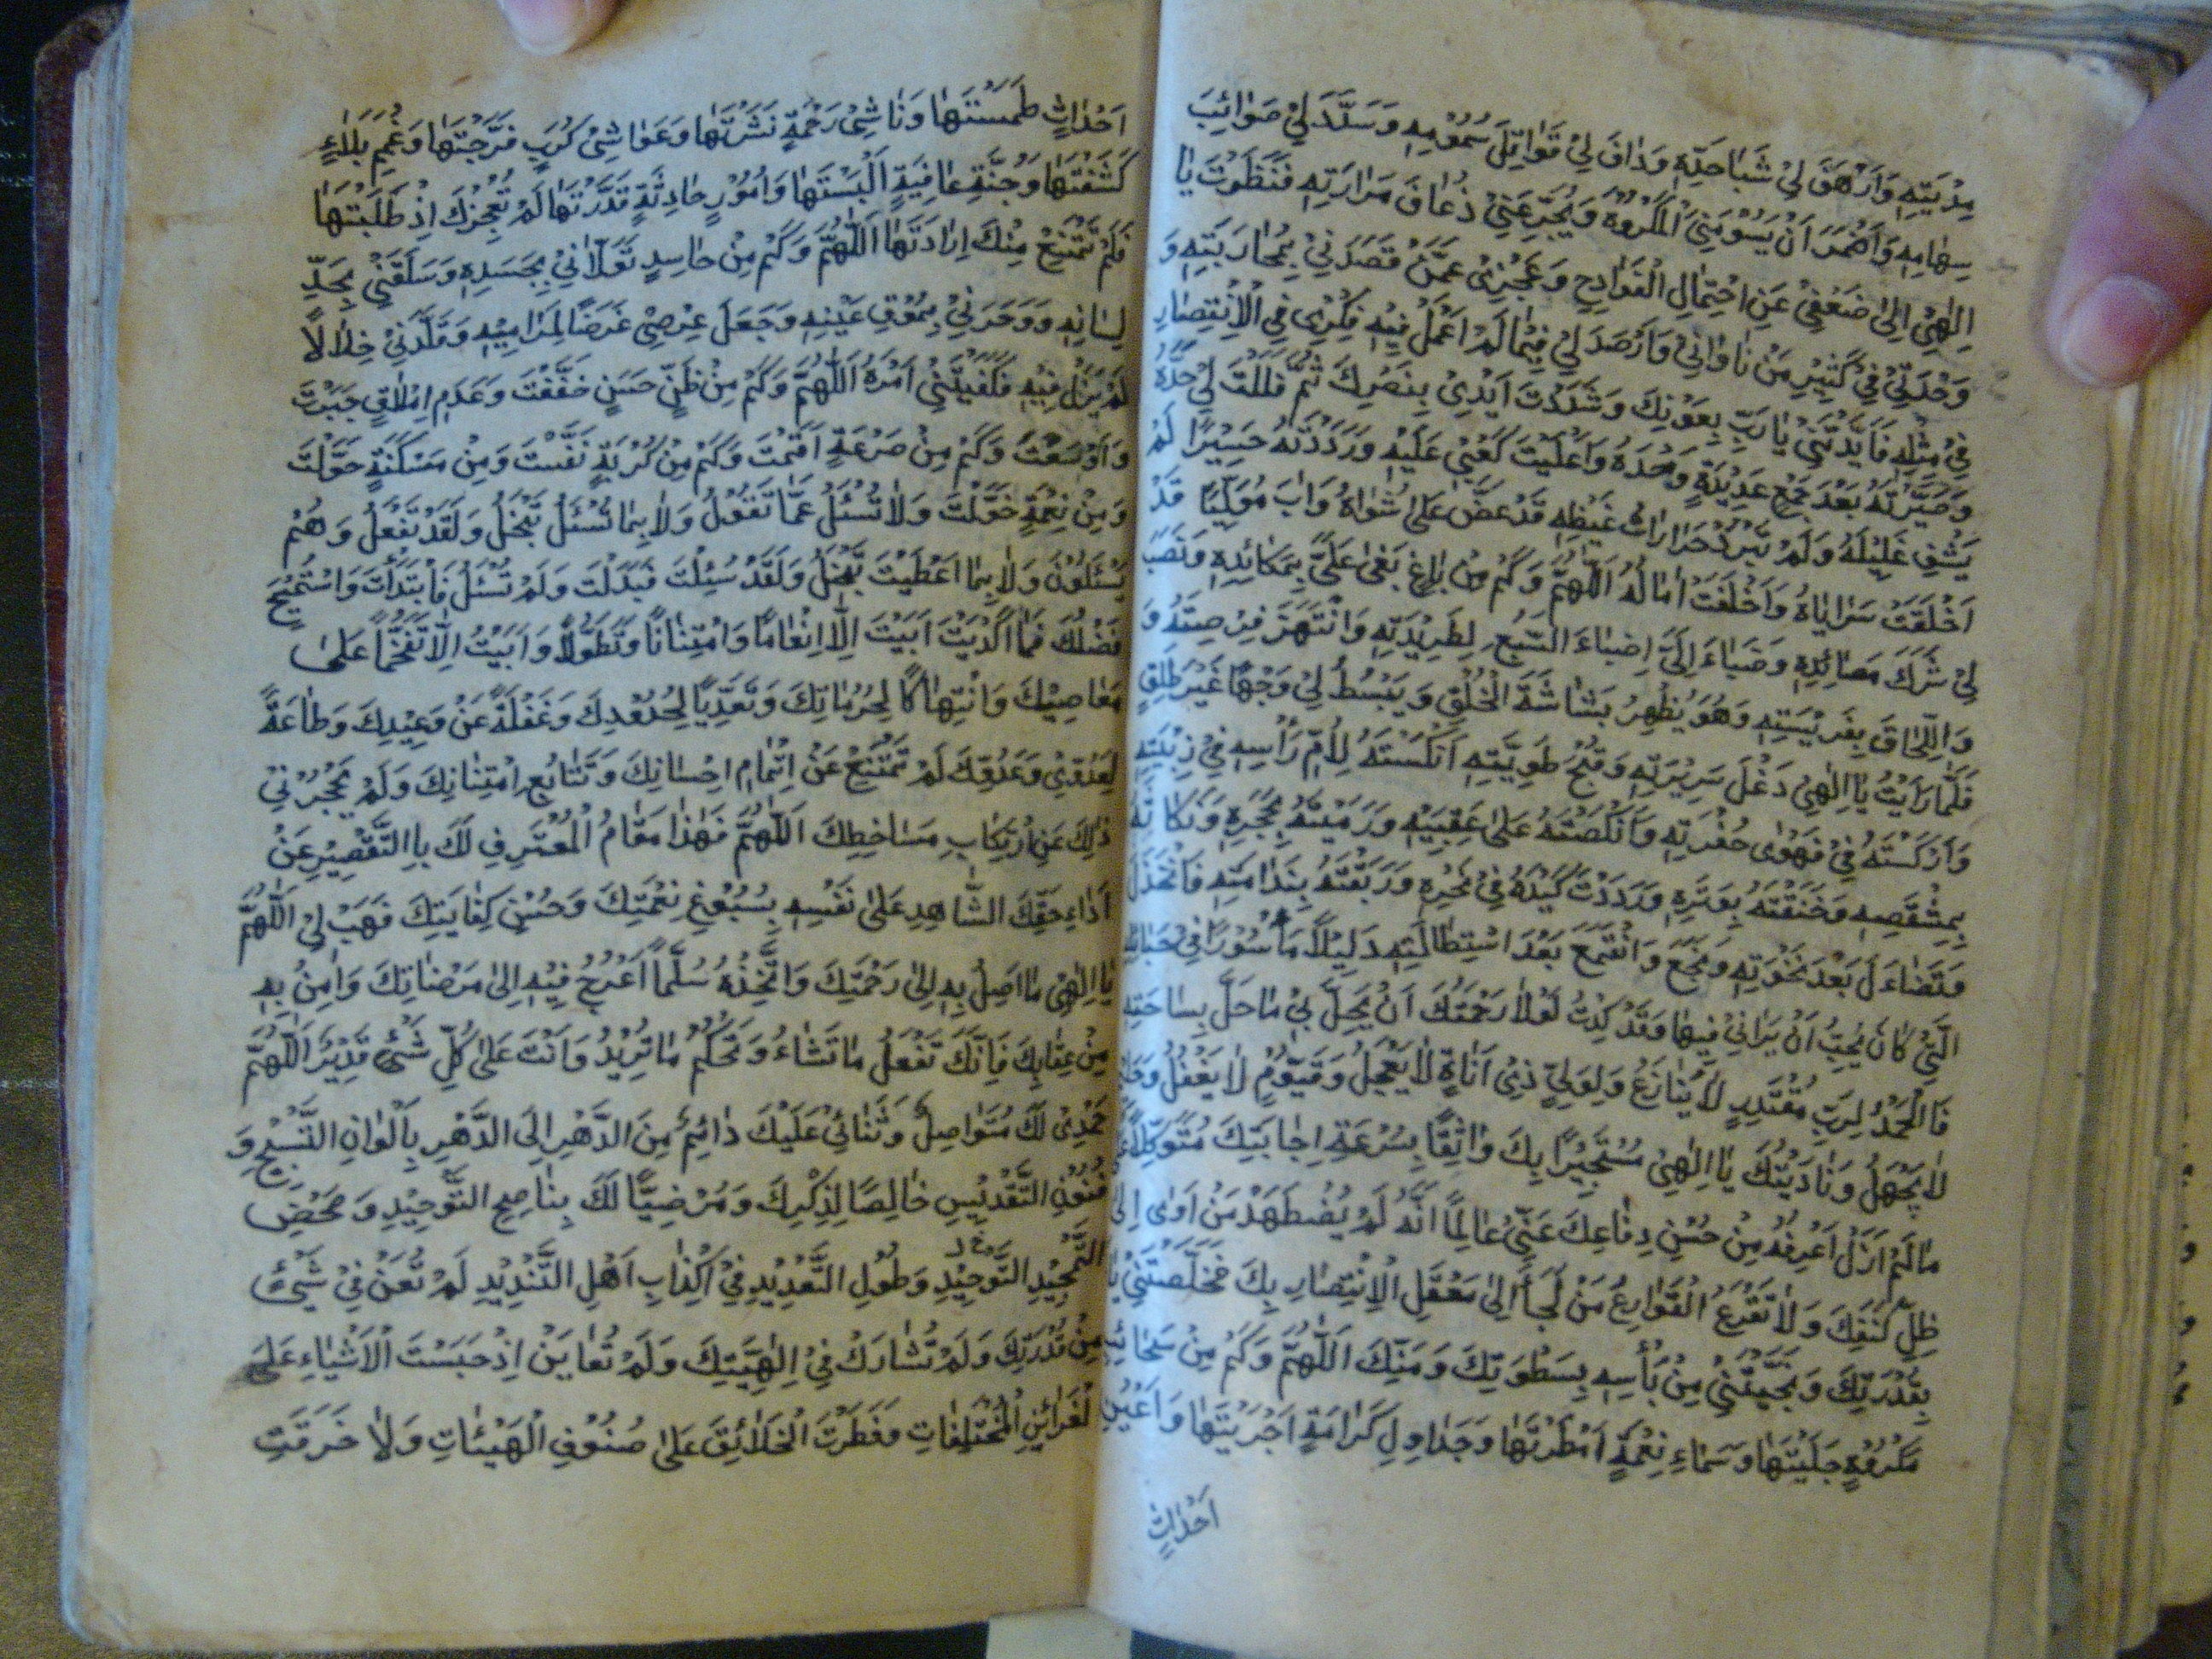 مِدْيَتِهِ وَاَرْهَقَ لِيْ شَبَاحَدِّهِ وَدٰافَ لِيْ قَوٰاتِلَ سُمُوْمِهِ وَسَدَّدَ لِيْ صَوٰائِبَ
سِهٰامِهِ وَاَضْمَرَ اَنْ يَسُوْمَنِيَ الْمَكْرُوهَ وَيُجَرِّعَنِيْ ذُعٰافَ مَرٰارَتِهِ فَنَظَرْتَ يٰا
اِلٰهِيْ اِلىٰ ضَعْفِيْ عَنِ احْتِمٰالِ الْفَوٰادِحِ وَعَجْزِيْ عَمَّنْ قَصَدَنِيْ بِمُحٰارَبَتِهِ وَ
وَحْدَتِيْ فِيْ كَثِيْرٍ مِنْ نٰاوٰانِيْ وَاَرْصَدَ لِيْ فِيْمٰا لَمْ اَعْمَلْ فِيْهِ فِكْرِيْ فِي الْاِنْتِصٰارِ
فِيْ مِثْلِهِ فَاَيَّدْتَنِيْ يٰا رَبِّ بِعَوْنِكَ وَشَدَدْتَ اَيْدِيْ بِنَصْرِكَ ثُمَّ فَلَلْتَ لِيْ حَدَّهُ
وَصَيَّرْتَهُ بَعْدَ جَمْعِ عَدِيْدَةٍ وَحْدَهُ وَاَعْلَيْتَ كَعْبِيْ عَلَيْهِ وَرَدَدْتَهُ حَسِيْرًا لَمْ
يَشْفِ غَلِيْلَهُ وَلَمْ يُبَرِّدْ حَرٰارٰاتُ غَيْظِهِ قَدْ عَضَّ عَلىٰ شَوٰاهُ وَاٰبَ مُوَلِّيًا قَدْ
اَخْلَقَتْ سَرٰايٰاهُ وَاَخْلَفَتْ اٰمٰالُهُ اَللّٰهُمَّ وَكَمْ مِنْ بٰاغٍ بَغىٰ عَلَيَّ بِمَكٰائِدِهِ وَنَصَبَ
لِيْ شَرَكَ مَصٰائِدِهِ وَضَبٰاءَ اِلَيَّ اِضْبٰاءَ السَّبُعِ لِطَرِيْدَتِهِ وَانْتَهَزَ فِرْصَتَهُ وَ
وَاللِّحٰاقَ بِفَرِيْسَتِهِ وَهُوَ يُظْهِرُ بَشٰاشَةَ الْخُلُقِ وَيَبْسُطُ لِيْ وَجْهًا غَيْرَ طَلِقٍ
فَلَمّٰا رَاَيْتَ يٰا اِلٰهِيْ دَغْلَ سَرِيْرَتِهِ وَقُبْحَ طَوِيَّتِهِ اَنْكَسْتَهُ لِاُمِّ رَأْسِهِ فِيْ زُبْيَتِهِ
وَاَرْكَسْتَهُ فِيْ مَهْوٰى حُفْرَتِهِ وَاَنْكَصْتَهُ عَلىٰ عَقِبَيْهِ وَرَمَيْتَهُ بِحَجَرِهِ وَنَكٰاتَهُ
بِمِشْقَصِهِ وَخَنَقْتَهُ بِوَتَرِهِ وَرَدَدْتَ كَيْدَهُ فِيْ نَحْرِهِ وَرَبَقْتَهُ بِنَدٰامَتِهِ فَانْخَذَلَ
وَتَضٰاءَلَ بَعْدَ نَخْوَتِهِ وَبَخَعَ وَانْقَمَعَ بَعْدَ اسْتِطٰالَتِهِ دَلِيْلاً مَأْسُوْرًا فِيْ حَبٰائِلِهِ
الَّتِيْ كٰانَ يُحِبُّ اَنْ يَرٰانِيْ فِيْهٰا وَقَدْ كِدْتُ لَوْلاٰ رَحْمَتُكَ اَنْ يَحِلَّ بِيْ مٰا حَلَّ بِسٰاحَتِهِ
فَالْحَمْدُ لِرَبٍّ مُقْتَدِرٍ لاٰ يُنٰازَعُ وَلِوَلِيٍّ ذِيْ اَنٰاةٍ لاٰ يَعْجَلُ وَقَيُّوْمٍ لاٰ يَغْفُلُ وَحَلِيْمٍ
لاٰ يَجْهَلُ وَنٰادَيْتُكَ يٰا اِلٰهِيْ مُسْتَجِيْرًا بِكَ وٰاثِقًا بِسُرْعَةِ اِجٰابَتِكَ مُتَوَكِّلاً عَلىٰ
مٰا لَمْ اَزَلْ اَعْرِفُهُ مِنْ حُسْنِ دِفٰاعِكَ عَنِّيْ عٰالِمًا اَنَّهُ لَمْ يُضْطَهَدْ مَنْ اَوٰى اِلىٰ
ظِلِّ كَنَفِكَ وَلاٰ تَقْرَعُ الْقَوٰارِعُ مَنْ لَجَأَ اِلىٰ مَعْقَلِ الْاِنْتِصٰارِ بِكَ فَخَلَّصْتَنِيْ يٰا
بِقُدْرَتِكَ وَنَجَّيْتَنِيْ مِنْ بَأْسِهِ بِسَطْوَتِكَ وَمَنِّكَ اَللّٰهُمَّ وَكَمْ مِنْ سَحٰائِبِ
مَكْرُوْهٍ جَلَّيْتَهٰا وَسَمٰاءِ نِعْمَةٍ اَمْطَرْتَهٰا وَجَدٰاوِلِ كَرٰامَةٍ اَجْرَيْتَهٰا وَاَعْيُنِ
اَحْدٰاثٍ
اَحْدٰاثٍ طَمَسْتَهٰا وَنٰاشِئِ رَحْمَةٍ نَشَرْتَهٰا وَغَوٰاشِيْ كُرَبٍ فَرَّجْتَهٰا وَغُمَمِ بَلاٰءٍ
كَشَفْتَهٰا وَجُنَّةِ عٰافِيَةٍ اَلْبَسْتَهٰا وَاُمُوْرٍ حٰادِثَةٍ قَدَّرْتَهٰا لَمْ تُعْجِزْكَ اِذْ طَلَبْتَهٰا
فَلَمْ تَمْتَنِعْ مِنْكَ اِرٰادَتَهٰا اَللّٰهُمَّ وَكَمْ مِنْ حٰاسِدٍ تَوَلاّٰنِيْ بِحَسَدِهِ وَسَلَقَنِيْ بِحَدِّ
لِسٰانِهِ وَوَخَزَنِيْ بِمُوْقِ عَيْنِهِ وَجَعَلَ عِرْضِيْ غَرَضًا لِمَرٰامِيْهِ وَقَلَّدَنِيْ خِلاٰلاً
لَمْ يَزَلْ فِيْهِ فَكَفَيْتَنِيْ اَمْرَهُ اَللّٰهُمَّ وَكَمْ مِنْ ظَنٍّ حَسَنٍ حَقَّقْتَ وَعَدَمِ اِمْلاٰقٍ جَبَرْتَ
وَاَوْسَعْتَ وَكَمْ مِنْ صَرْعَةٍ اَقَمْتَ وَكَمْ مِنْ كُرْبَةٍ نَفَّسْتَ وَمِنْ مَسْكَنَةٍ حَوَّلْتَ
وَمِنْ نِعْمَةٍ خَوَّلْتَ وَلاٰ تُسْئَلُ عَمّٰا تَفْعَلُ وَلاٰ بِمٰا تُسْئَلُ تَبْخَلُ وَلَقَدْ تَفْعَلُ وَهُمْ
يُسْئَلُوْنَ وَلاٰ بِمٰا اَعْطَيْتَ تَبْخَلُ وَلَقَدْ سُئِلْتَ فَبَذَلْتَ وَلَمْ تُسْئَلْ فَابْتَدَأْتَ وَاسْتُمِيْحَ
فَضْلُكَ فَمٰا اَكْدَيْتَ اَبَيْتَ اِلاّٰ اِنْعٰامًا وَامْتِنٰانًا وَتَطَوُّلاً وَاَبَيْتُ اِلاّٰ تَقَحُّمًا عَلىٰ
مَعٰاصِيْكَ وَانْتِهٰاكًا لِحُرُمٰاتِكَ وَتَعَدِّيًا لِحُدُوْدِكَ وَغَفْلَةً عَنْ وَعِيْدِكَ وَطٰاعَةً
لِعَدُوِّيْ وَعَدُوِّكَ لَمْ تَمْتَنِعْ عَنْ اِتْمٰامِ اِحْسٰانِكَ وَتَتٰابُعِ امْتِنٰانِكَ وَلَمْ يَحْجُزْنِيْ
ذٰلِكَ عَنِ ارْتِكٰابِ مَسٰاخِطِكَ اَللّٰهُمَّ فَهٰذٰا مَقٰامُ الْمُعْتَرِفِ لَكَ بِاالتَّقْصِيْرِ عَنْ
اَدٰاءِ حَقِّكَ الشّٰاهِدِ عَلىٰ نَفْسِهِ بِسُبُوْغِ نِعْمَتِكَ وَحُسْنِ كِفٰايَتِكَ فَهَبْ لِيْ اَللّٰهُمَّ
يٰا اِلٰهِيْ مٰا اَصِلُ بِهِ اِلىٰ رَحْمَتِكَ وَاَتَّخِذُهُ سُلَّمًا اَعْرُجُ فِيْهِ اِلىٰ مَرْضٰاتِكَ وَاٰمَنُ بِهِ
مِنْ عِقٰابِكَ فَاِنَّكَ تَفْعَلُ مٰا تَشٰاءُ وَتَحْكُمُ مٰا تُرِيْدُ وَاَنْتَ عَلىٰ كُلِّ شَيْئٍ قَدِيْرٌ اَللّٰهُمَّ
حَمْدِيْ لَكَ مُتَوٰاصِلٌ وَثَنٰائِيْ عَلَيْكَ دٰائِمٌ مِنَ الدَّهْرِ اِلَى الدَّهْرِ بِاَلْوٰانِ التَّسْبِيْحِ وَ
فُنُوْنِ التَّقْدِيْسِ خٰالِصًا لِذِكْرِكَ وَمَرْضِيًّا لَكَ بِنٰاصِحِ التَّوْحِيْدِ وَمَحْضِ
التَّمْجِيْدِ التَّوْحِيْدِ وَطُوْلِ التَّعْدِيْدِ فِيْ اِكْذٰابِ اَهْلِ التَّنْدِيْدِ لَمْ تُعَنْ فِيْ شَيْئٍ
مِنْ قُدْرَتِكَ وَلَمْ تُشٰارَكْ فِيْ اِلٰهِيَّتِكَ وَلَمْ تُعٰايَنْ اِذْ حَبَسْتَ الْاَشْيٰاءَ عَلَى
الْغَرٰائِزِ الْمُخْتَلِفٰاتِ وَفَطَرْتَ الْخَلاٰئِقَ عَلىٰ صُنُوْفِ الْهَيْئٰاتِ وَلاٰ خَرَقَتْ